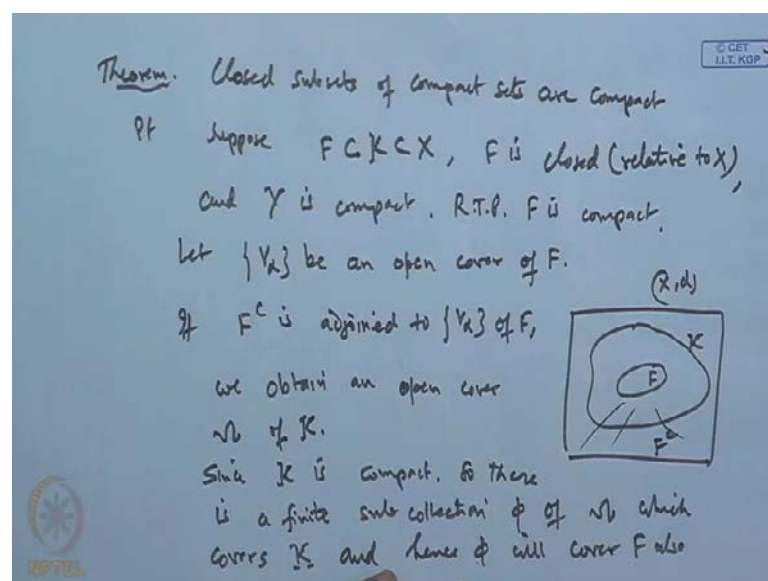 © CET
I.I.T. KGP
Theorem. Closed subsets of compact sets are compact
Pf Suppose F ⊂ K ⊂ X, F is closed (relative to X),
and Y is compact. R.T.P. F is compact.
Let {Vα} be an open cover of F.
(X, d)
If F^c is adjoined to {Vα} of F,
K
F
F^c
we obtain an open cover
Ω of K.
Since K is compact. So there
is a finite sub collection φ of Ω which
covers K and hence φ will cover F also
NPTEL